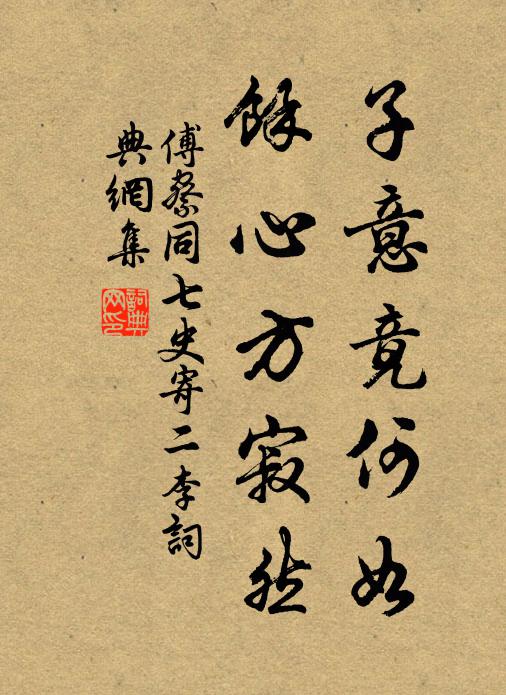 子意竟何如
餘心方寂然
傅察同七史寄二李詞
典網集
詞典網印